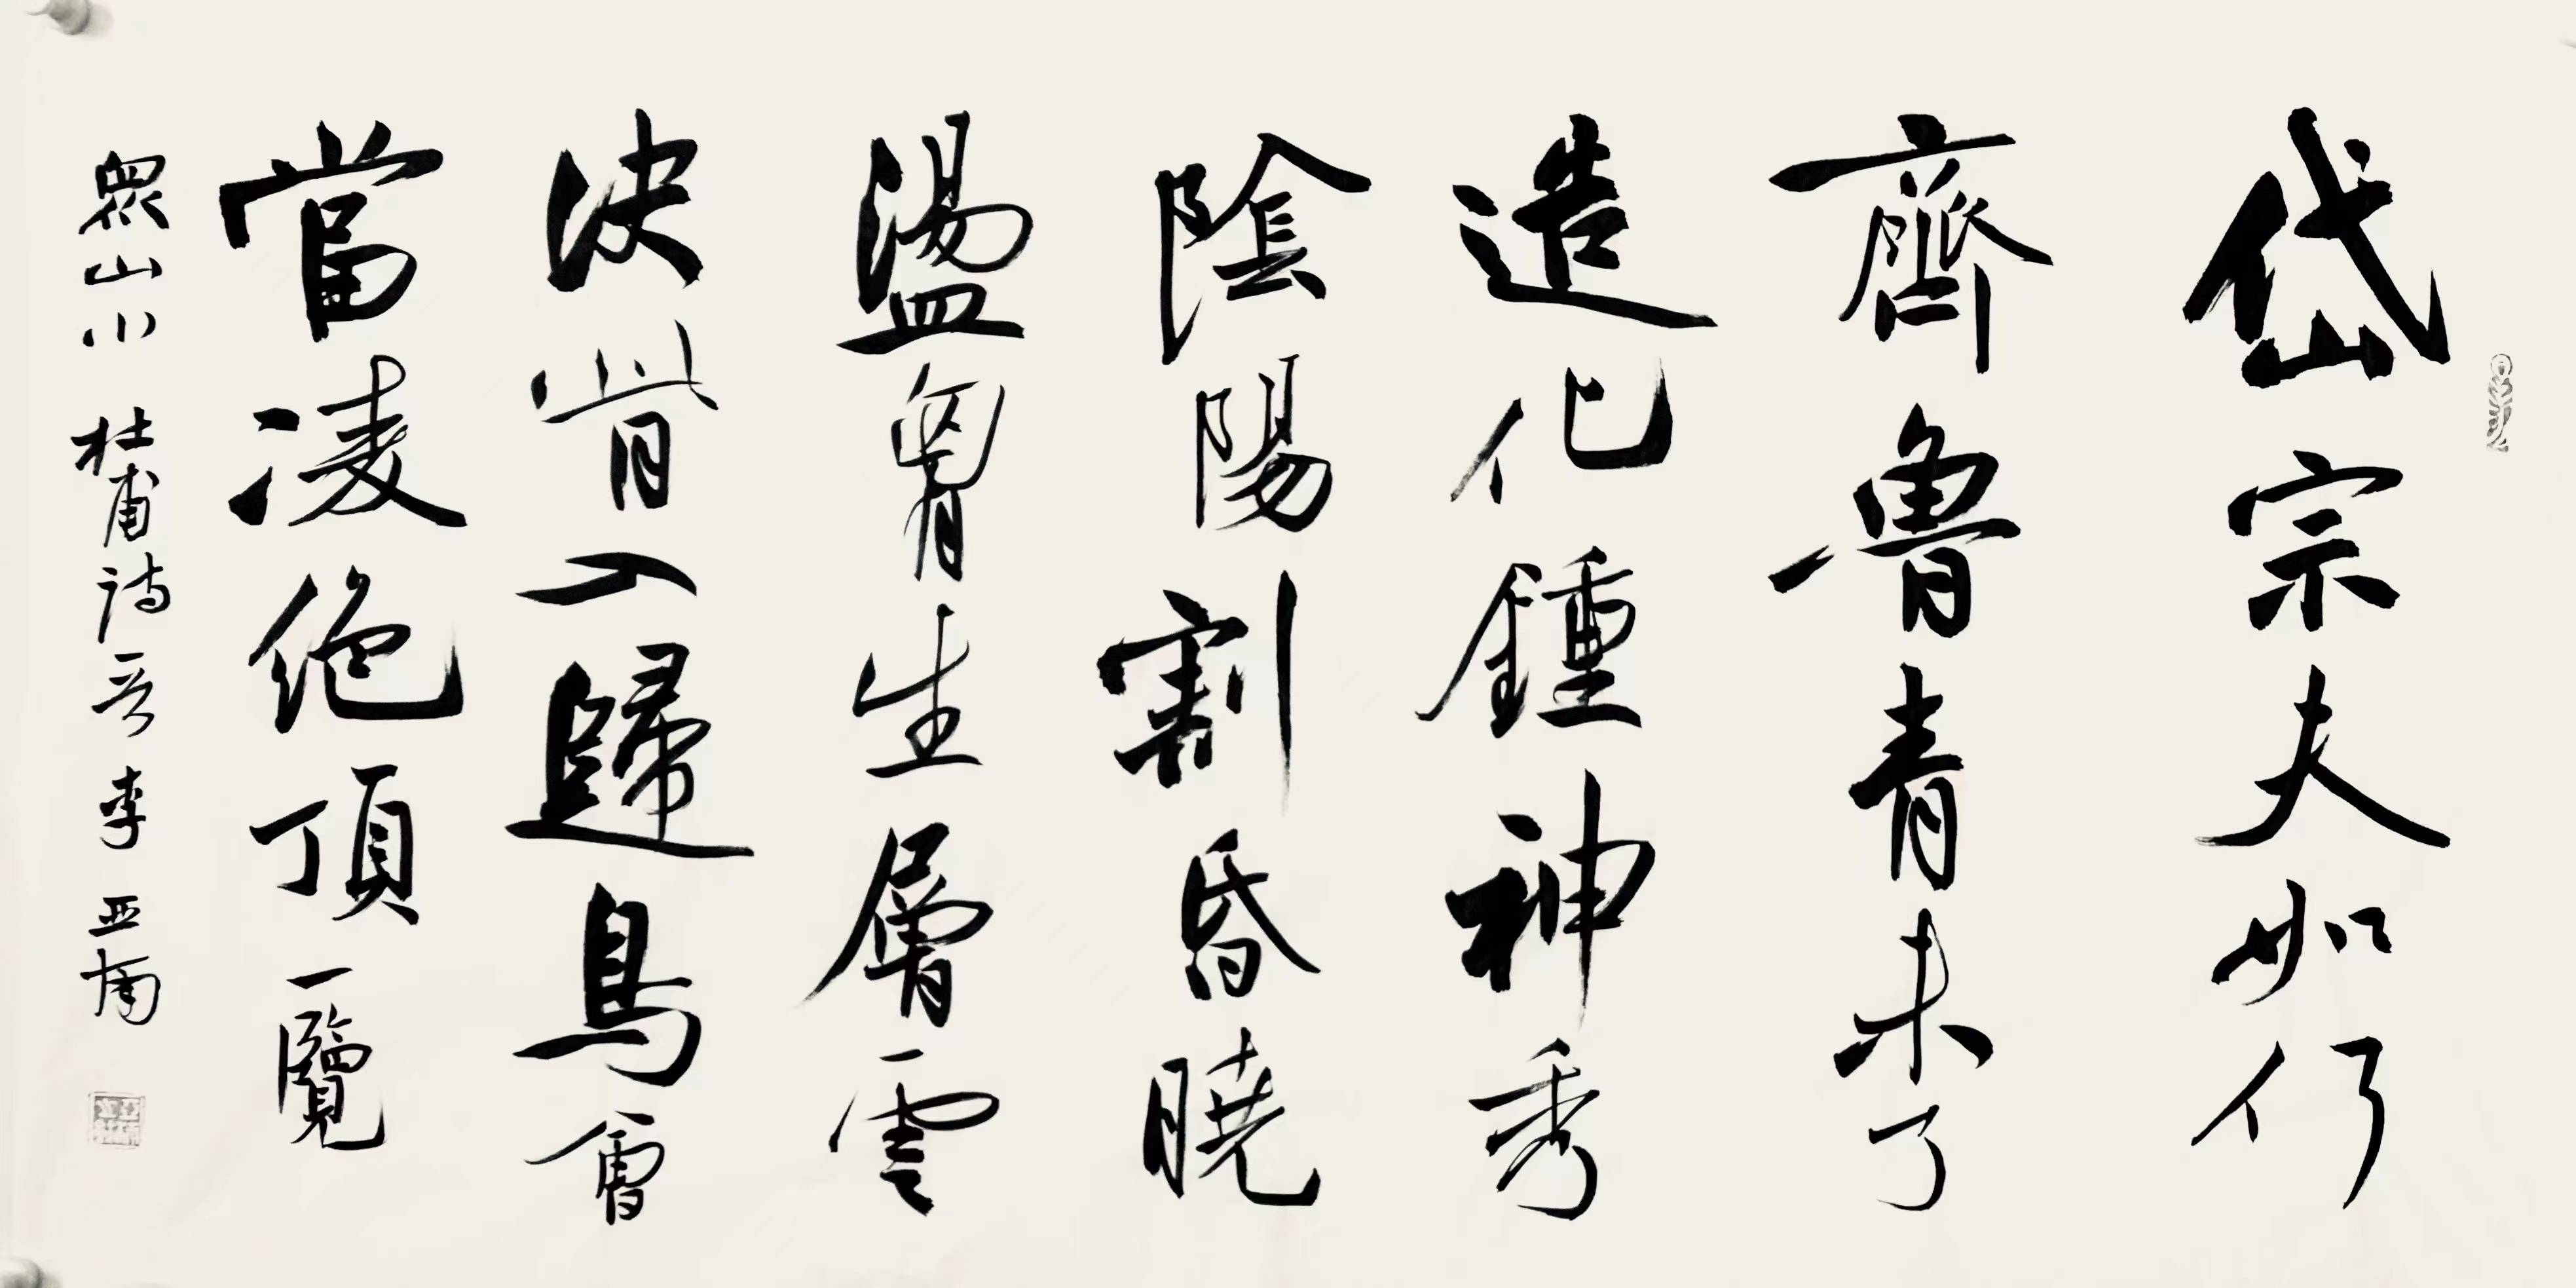 岱宗夫如何
齊魯青未了
造化鍾神秀
陰陽割昏曉
盪胷生層雲
決眥入歸鳥會
當凌絶頂一覽
眾山小 杜甫詩一首 李亚楠